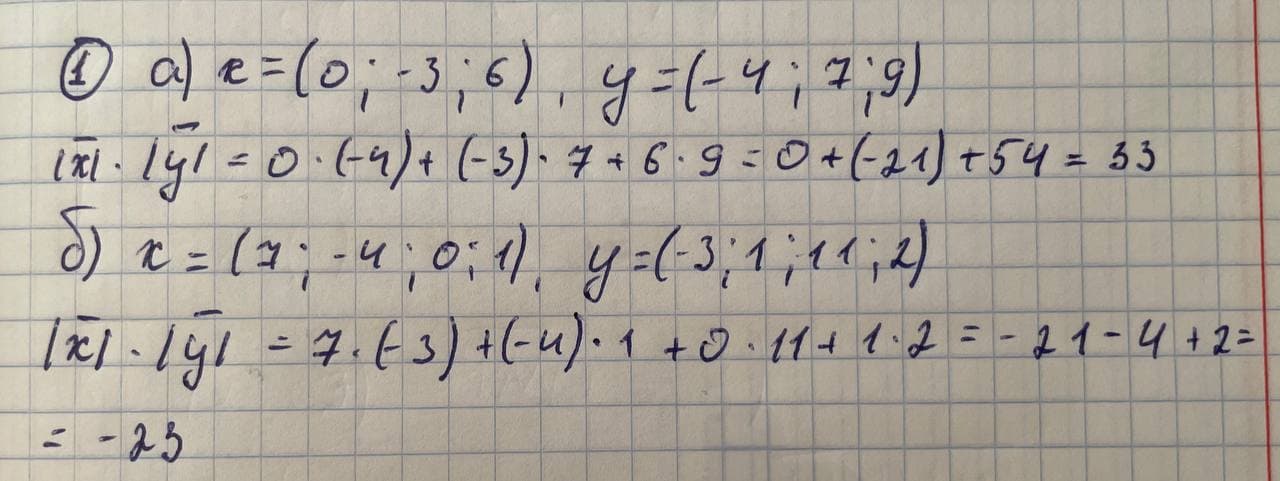 ① а) x = (0 ; -3 ; 6) , y = (-4 ; 7 ; 9)
|x̄| · |ȳ| = 0 · (-4) + (-3) · 7 + 6 · 9 = 0 + (-21) + 54 = 33
б) x = (7 ; -4 ; 0 ; 1) , y = (-3 ; 1 ; 11 ; 2)
|x̄| · |ȳ| = 7 · (-3) + (-4) · 1 + 0 · 11 + 1 · 2 = -21 - 4 + 2 =
= -23